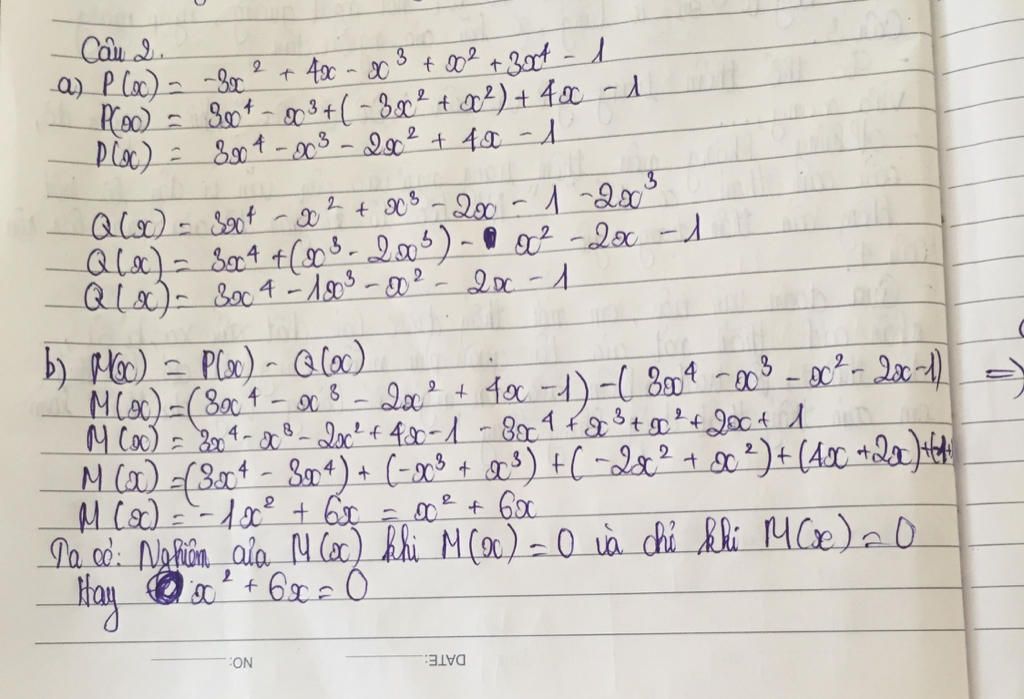 Câu 2.
a) P(x) = -3x² + 4x - x³ + x² + 3x⁴ - 1
P(x) = 3x⁴ - x³ + (-3x² + x²) + 4x - 1
P(x) = 3x⁴ - x³ - 2x² + 4x - 1
Q(x) = 3x⁴ - x² + x³ - 2x - 1 - 2x³
Q(x) = 3x⁴ + (x³ - 2x³) - x² - 2x - 1
Q(x) = 3x⁴ - 1x³ - x² - 2x - 1
b) M(x) = P(x) - Q(x)
M(x) = (3x⁴ - x³ - 2x² + 4x - 1) - (3x⁴ - x³ - x² - 2x - 1) =>
M(x) = 3x⁴ - x³ - 2x² + 4x - 1 - 3x⁴ + x³ + x² + 2x + 1
M(x) = (3x⁴ - 3x⁴) + (-x³ + x³) + (-2x² + x²) + (4x + 2x) +
M(x) = -1x² + 6x = x² + 6x
Ta có: Nghiệm của M(x) khi M(x) = 0 và chỉ khi M(x) = 0
Hay x² + 6x = 0
DATE:
NO: